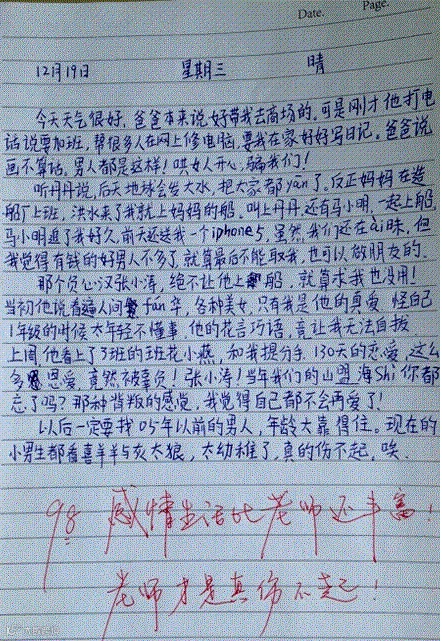 Date. Page.
12月19日 星期三 晴
今天天气很好，爸爸本来说好带我去商场的，可是刚才他打电
话说要加班，帮很多人在网上修电脑，要我在家好好写日记。爸爸说
画不算话，男人都是这样！哄女人开心，骗我们！
听丹丹说，后天地球会发大水，把大家都yān了，反正妈妈在造
船厂上班，洪水来了我就上妈妈的船，叫上丹丹，还有马小明，一起上船，
马小明追了我好久，前天还送我一个iphone5，虽然我们还在ài昧，但
我觉得有钱的好男人不多了，就算最后不能取我，也可以做朋友的。
那个负心汉张小涛，绝不让他上船，就算求我也没用！
当初他说看遍人间fán华，各种美女，只有我是他的真爱，怪自己
1年级的时候太年轻不懂事，他的花言巧语，竟让我无法自拔
上周他看上了3班的班花小燕，和我提分手，130天的恋爱，这么
多恩爱，竟然不被辜负！张小涛！当年我们的山盟海Shi你都
忘了吗？那种背叛的感觉，我觉得自己都不会再爱了！
以后一定要找05年以前的男人，年龄大靠得住。现在的
小男生都看喜羊羊与灰太狼，太幼稚了，真的伤不起，唉.
98 感情生活比老师还丰富！
老师才是真伤不起！